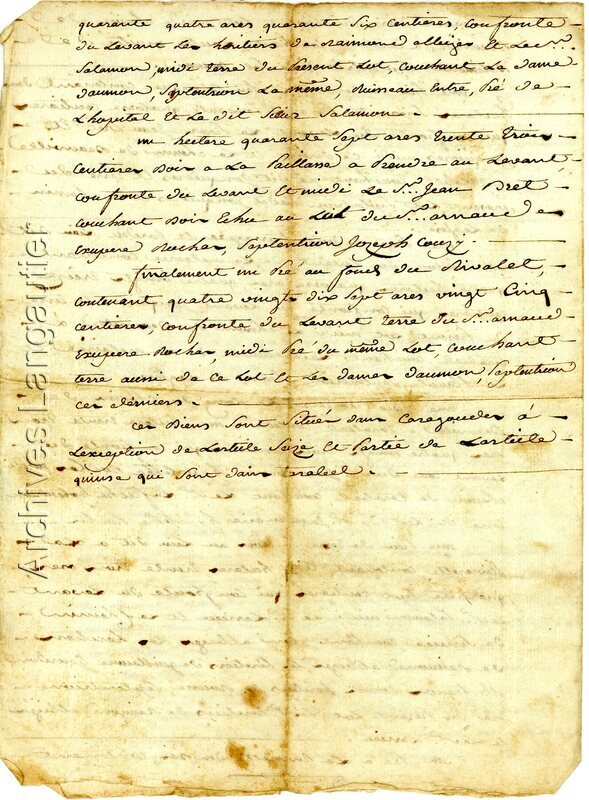 quarante quatre ares quarante six centieres, confronte
du Levant Les heritiers de raimond albiges Et Le Sr.
Salamon, midi terre du Present Lot, couchant La dame
daumon, septentrion La même, Ruisseau Entre, Pré de
L'hopital Et Le dit Sieur Salamon.
un hectare quarante Sept ares trente trois
centieres Bois a La Paillasse a Prendre au Levant,
confronte du Levant Et midi Le Sr. Jean Bret
couchant Bois Echu au Lot du Sr. arnaud
Exupere Rochas, septentrion Joseph
finalement un Pré au fonds du Rivalet,
contenant quatre vingt dix Sept ares vingt Cinq
centieres, confronte du Levant terre du Sr. arnaud
Exupere Rochas, midi Pré du même Lot, couchant
terre aussi de ce Lot Et Les dames daumon, septentrion
ces derniers.
ces Biens Sont Situés dans Caragoudes à
Lexception de Larticle Seize Et Partie de Larticle
quinse qui sont dans tarabel.
Archives Langautier